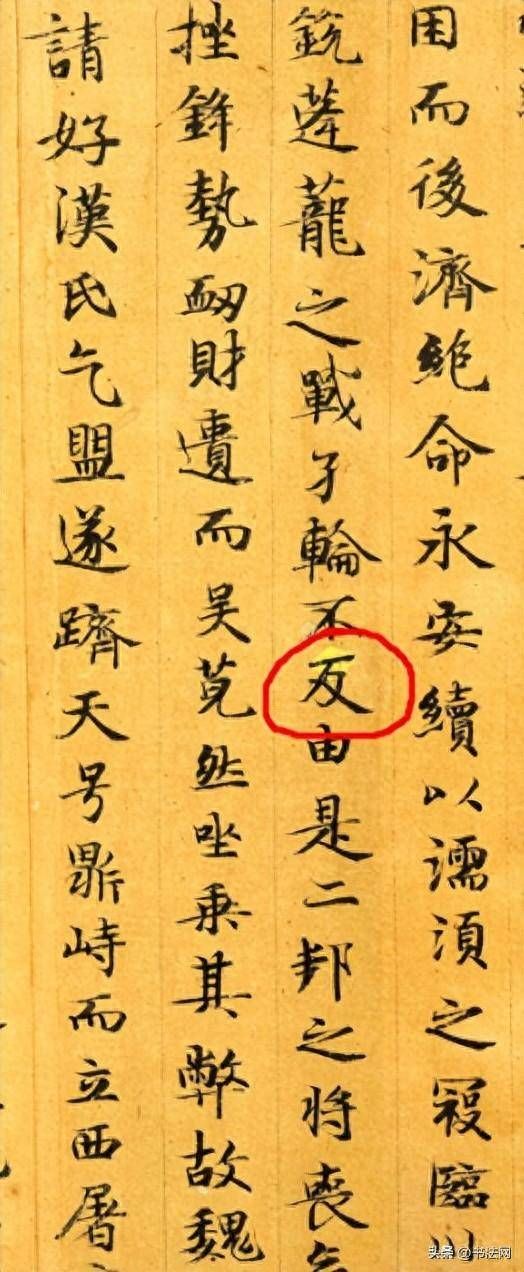 困而後濟絕命永安續以濡須之寇臨川
銳蓬蘢之戰孑輪不反由是二邦之將喪氣
挫鋒勢衄財匱而吴莞然坐乗其弊故魏
請好漢氏乞盟遂躋天号鼎峙而立西屠
头条 @书法网